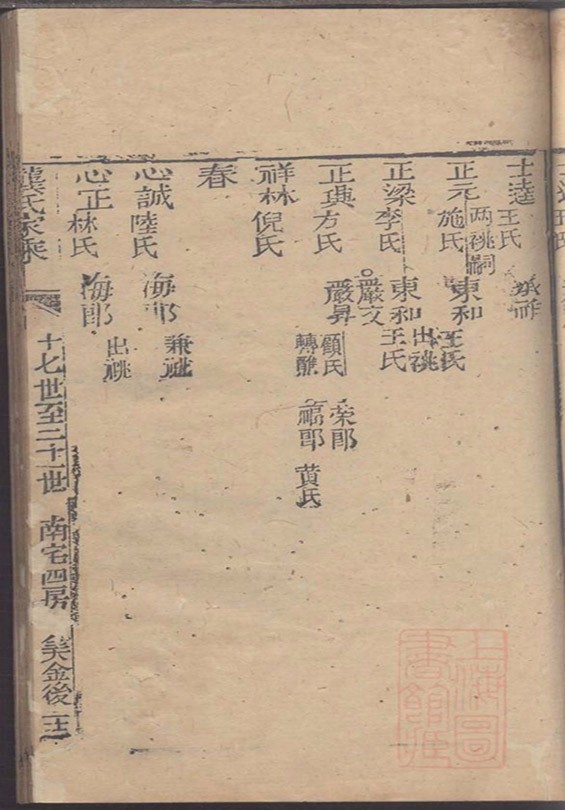 士達 王氏 承祚
正元 施氏 兩祧嗣 東和 王氏
正梁 李氏 東和 出祧 王氏 嚴文
正與 方氏 嚴昇 顧氏 轉醮 榮郎 福郎 黃氏
祥林 倪氏
春
心誠 陸氏 海郎 兼祧
心正 林氏 海郎 出祧
龔氏家乘 十七世至二十一世 南宅四房 美金後
上海圖書館藏